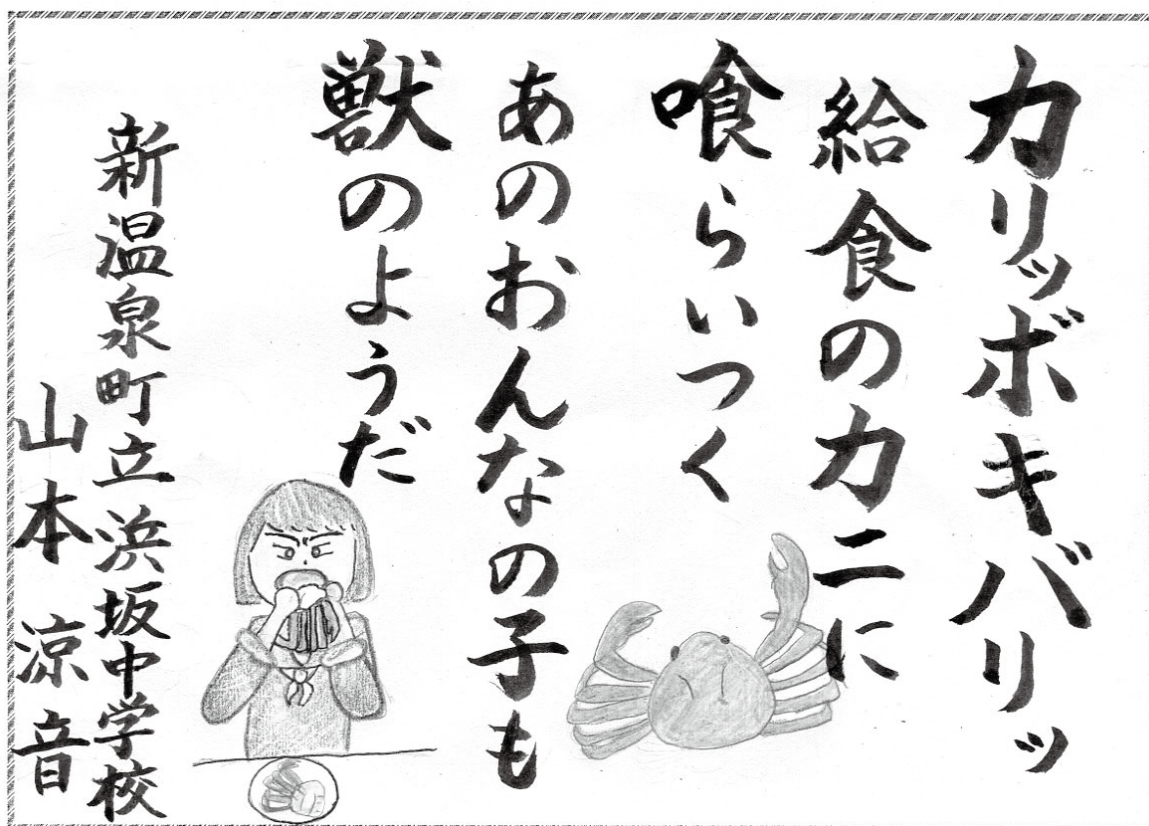 カリッボキバリッ
給食のカニに
喰らいつく
あのおんなの子も
獣のようだ
新温泉町立浜坂中学校
山本涼音